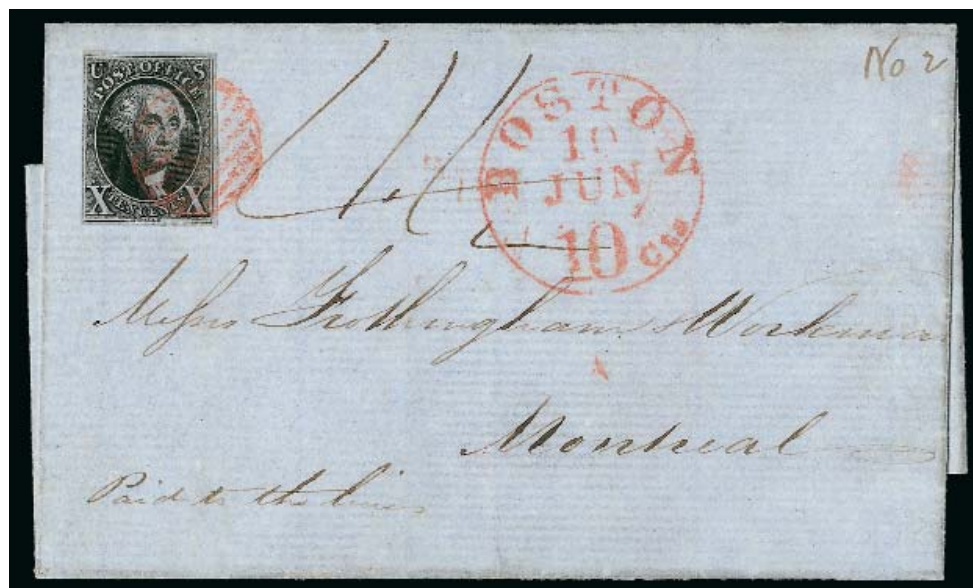 No 2
U S
POST OFFICE
X TEN CENTS X
BOSTON
19
JUN
10 Cts
Messrs Frothingham & Workman
Montreal
Paid to the lines